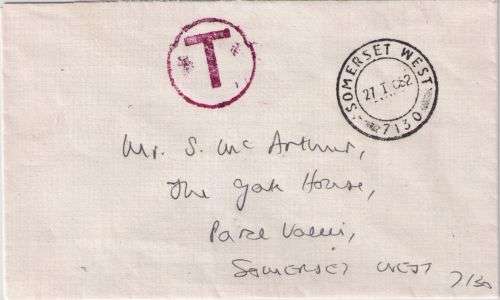 T
SOMERSET WEST
27 I 1982
7130
Mr. S. Mc Arthur,
The Gate House,
Parel Vallei,
SOMERSET WEST
7130